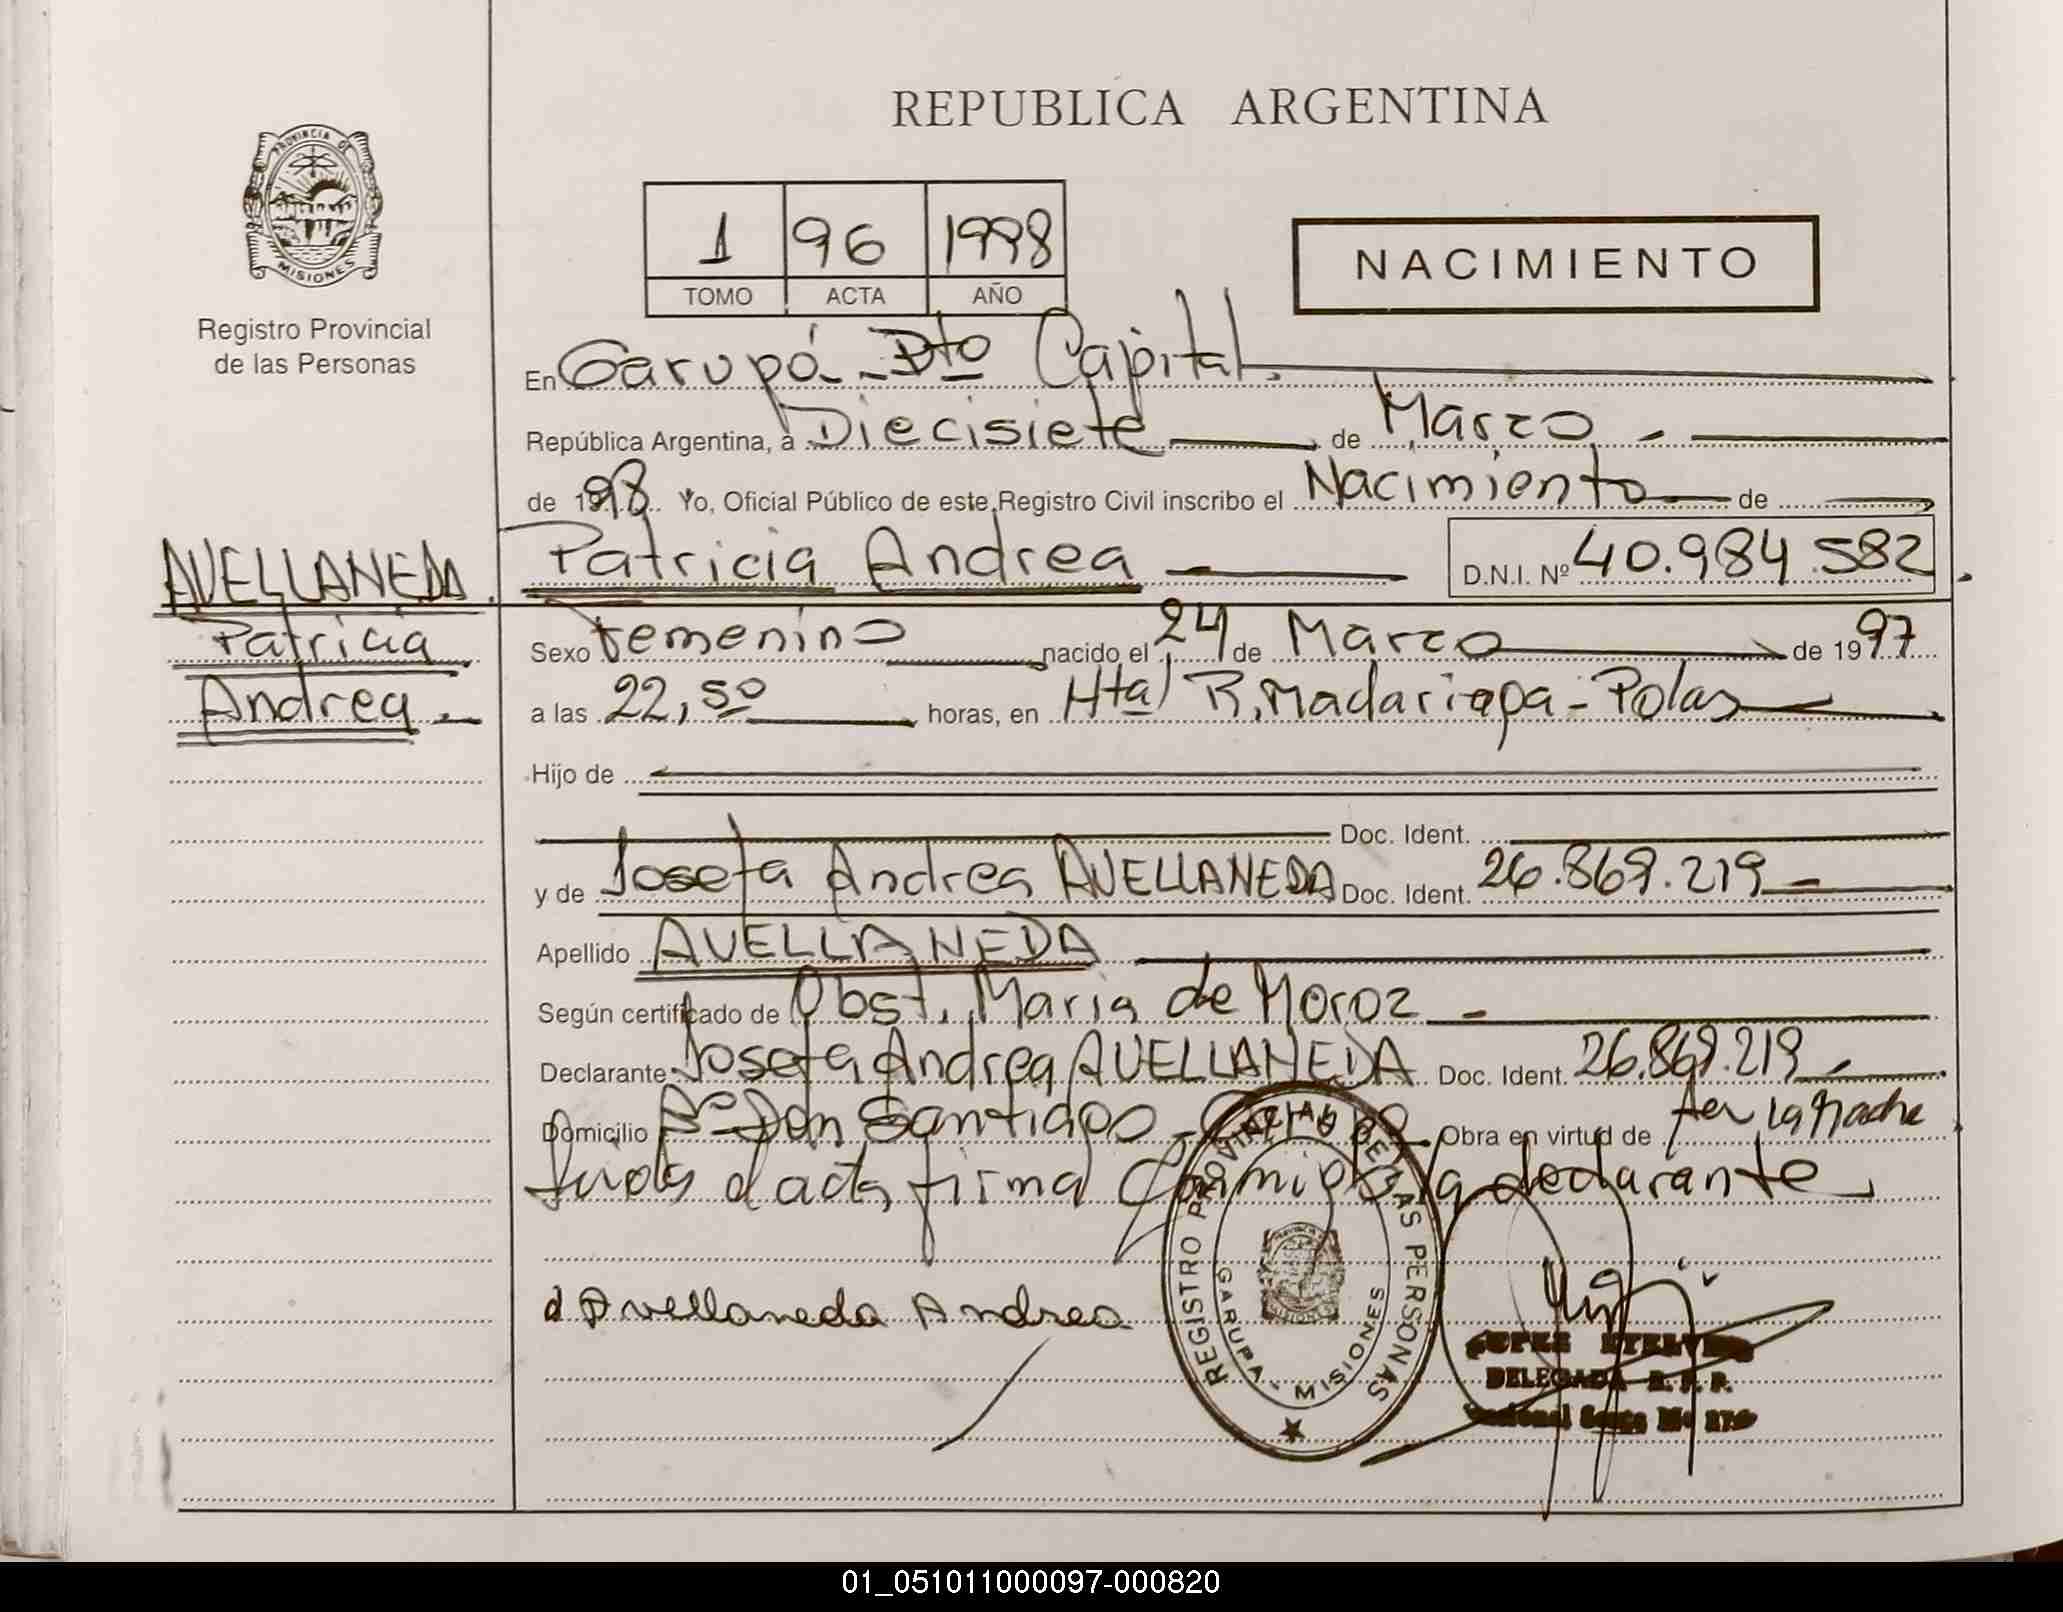 REPUBLICA ARGENTINA
PROVINCIA DE
MISIONES
Registro Provincial
de las Personas
1 96 1998
TOMO ACTA AÑO
NACIMIENTO
En Garupá - Dto Capital.
República Argentina, a Diecisiete de Marzo -
de 1998 Yo, Oficial Público de este Registro Civil inscribo el Nacimiento de
AVELLANEDA Patricia Andrea D.N.I. Nº 40.984.582
Patricia
Andrea -
Sexo femenino nacido el 24 de Marzo de 1997
a las 22,50 horas, en Htal R. Madariaga - Pdas
Hijo de
Doc. Ident.
y de Josefa Andrea AVELLANEDA Doc. Ident. 26.869.219
Apellido AVELLANEDA
Según certificado de Obst. Maria de Moroz -
Declarante Josefa Andrea AVELLANEDA Doc. Ident. 26.869.219
Domicilio Bº Don Santiago - Obra en virtud de ser la Madre
Leida el acta, firma Conmigo la declarante
Avellaneda Andrea
REGISTRO PROVINCIAL DE LAS PERSONAS
GARUPA - MISIONES
DELEGADA R. P. P.
01_051011000097-000820